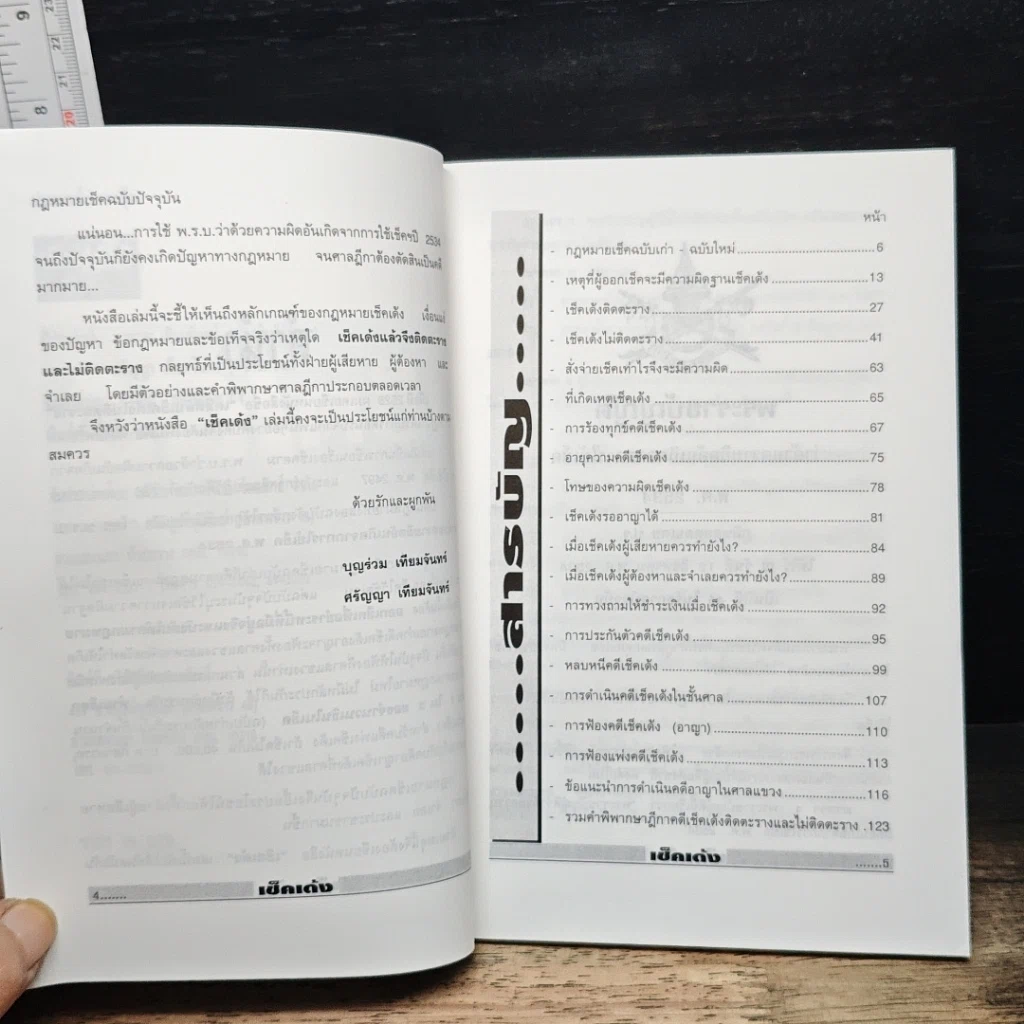 9
8
23
22
21
20
กฎหมายเช็คฉบับปัจจุบัน
แน่นอน...การใช้ พ.ร.บ.ว่าด้วยความผิดอันเกิดจากการใช้เช็คฯปี 2534
จนถึงปัจจุบันก็ยังคงเกิดปัญหาทางกฎหมาย จนศาลฎีกาต้องตัดสินเป็นคดี
มากมาย...
หนังสือเล่มนี้จะชี้ให้เห็นถึงหลักเกณฑ์ของกฎหมายเช็คเด้ง
ของปัญหา ข้อกฎหมายและข้อเท็จจริงว่าเหตุใด เช็คเด้งแล้วจึงติดตะราง
และไม่ติดตะราง กลยุทธ์ที่เป็นประโยชน์ทั้งฝ่ายผู้เสียหาย ผู้ต้องหา และ
จำเลย โดยมีตัวอย่างและคำพิพากษาศาลฎีกาประกอบตลอดเวลา
จึงหวังว่าหนังสือ “เช็คเด้ง” เล่มนี้คงจะเป็นประโยชน์แก่ท่านบ้างตาม
สมควร
ด้วยรักและผูกพัน
บุญร่วม เทียมจันทร์
ศรัญญา เทียมจันทร์
4.......
เช็คเด้ง
สารบัญ
หน้า
- กฎหมายเช็คฉบับเก่า - ฉบับใหม่.................................6
- เหตุที่ผู้ออกเช็คจะมีความผิดฐานเช็คเด้ง.........................13
- เช็คเด้งติดตะราง.....................................................27
- เช็คเด้งไม่ติดตะราง..................................................41
- สั่งจ่ายเช็คเท่าไรจึงจะมีความผิด...................................63
- ที่เกิดเหตุเช็คเด้ง.....................................................65
- การร้องทุกข์คดีเช็คเด้ง..............................................67
- อายุความคดีเช็คเด้ง.................................................75
- โทษของความผิดเช็คเด้ง............................................78
- เช็คเด้งรออาญาได้...................................................81
- เมื่อเช็คเด้งผู้เสียหายควรทำยังไง?.................................84
- เมื่อเช็คเด้งผู้ต้องหาและจำเลยควรทำยังไง?.....................89
- การทวงถามให้ชำระเงินเมื่อเช็คเด้ง................................92
- การประกันตัวคดีเช็คเด้ง............................................95
- หลบหนีคดีเช็คเด้ง...................................................99
- การดำเนินคดีเช็คเด้งในชั้นศาล...................................107
- การฟ้องคดีเช็คเด้ง (อาญา)......................................110
- การฟ้องแพ่งคดีเช็คเด้ง............................................113
- ข้อแนะนำการดำเนินคดีอาญาในศาลแขวง.....................116
- รวมคำพิพากษาฎีกาคดีเช็คเด้งติดตะรางและไม่ติดตะราง .123
เช็คเด้ง
.......5